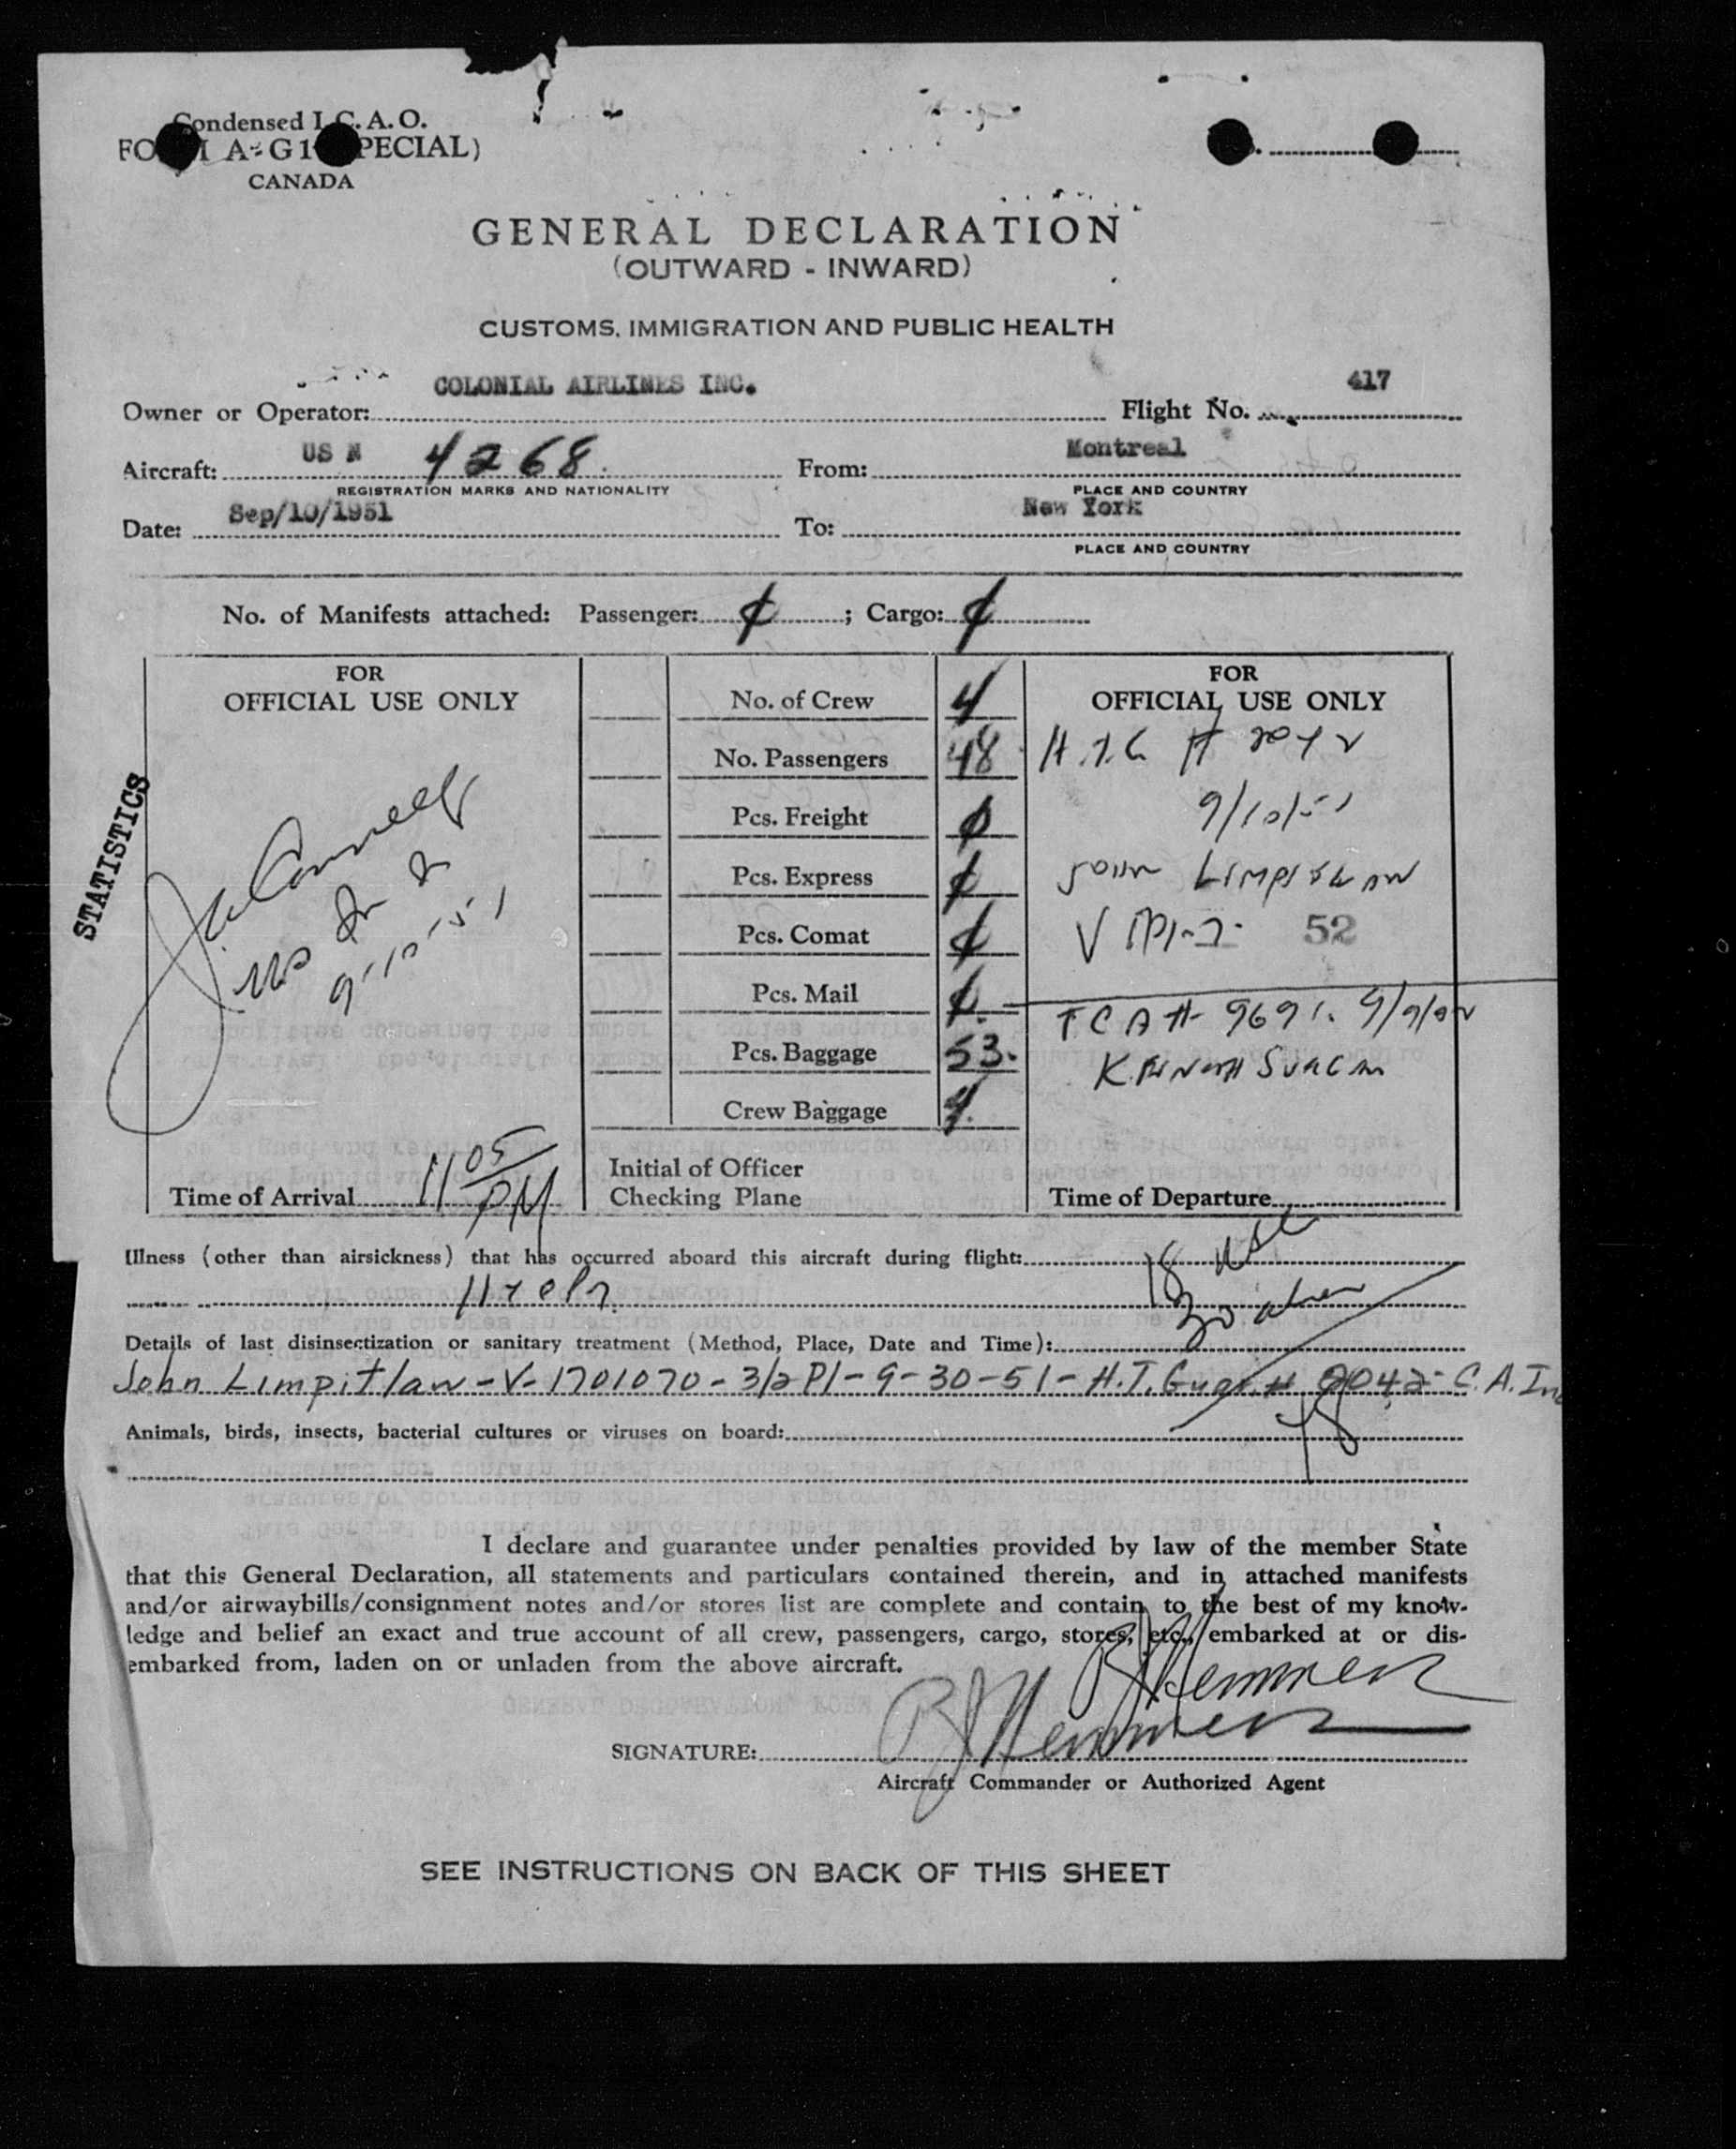 Condensed I.C.A.O.
A-G1
CANADA
GENERAL DECLARATION
(OUTWARD - INWARD)
CUSTOMS, IMMIGRATION AND PUBLIC HEALTH
Owner or Operator: COLONIAL AIRLINES INC. Flight No. 417
Aircraft: US N 4268. From: Montreal
REGISTRATION MARKS AND NATIONALITY PLACE AND COUNTRY
Date: Sep/10/1951 To: New York
PLACE AND COUNTRY
No. of Manifests attached: Passenger: ; Cargo:
FOR
OFFICIAL USE ONLY
STATISTICS
9-10-51
Time of Arrival 11 05 PM
No. of Crew 4
No. Passengers 48
Pcs. Freight
Pcs. Express
Pcs. Comat
Pcs. Mail
Pcs. Baggage 53.
Crew Baggage 4.
Initial of Officer
Checking Plane
FOR
OFFICIAL USE ONLY
9/10/51
John Limpitlaw
52
T C A # 9691.
Time of Departure
Illness (other than airsickness) that has occurred aboard this aircraft during flight:
18 USC
30 alien
Details of last disinsectization or sanitary treatment (Method, Place, Date and Time):
John Limpitlaw - V- 1701070 - 3/2 PI - 9-30-51 - H.T. Guar. # 2042- C.A. Inc
48
Animals, birds, insects, bacterial cultures or viruses on board:
I declare and guarantee under penalties provided by law of the member State
that this General Declaration, all statements and particulars contained therein, and in attached manifests
and/or airwaybills/consignment notes and/or stores list are complete and contain to the best of my know-
ledge and belief an exact and true account of all crew, passengers, cargo, stores, etc., embarked at or dis-
embarked from, laden on or unladen from the above aircraft.
SIGNATURE:
Aircraft Commander or Authorized Agent
SEE INSTRUCTIONS ON BACK OF THIS SHEET